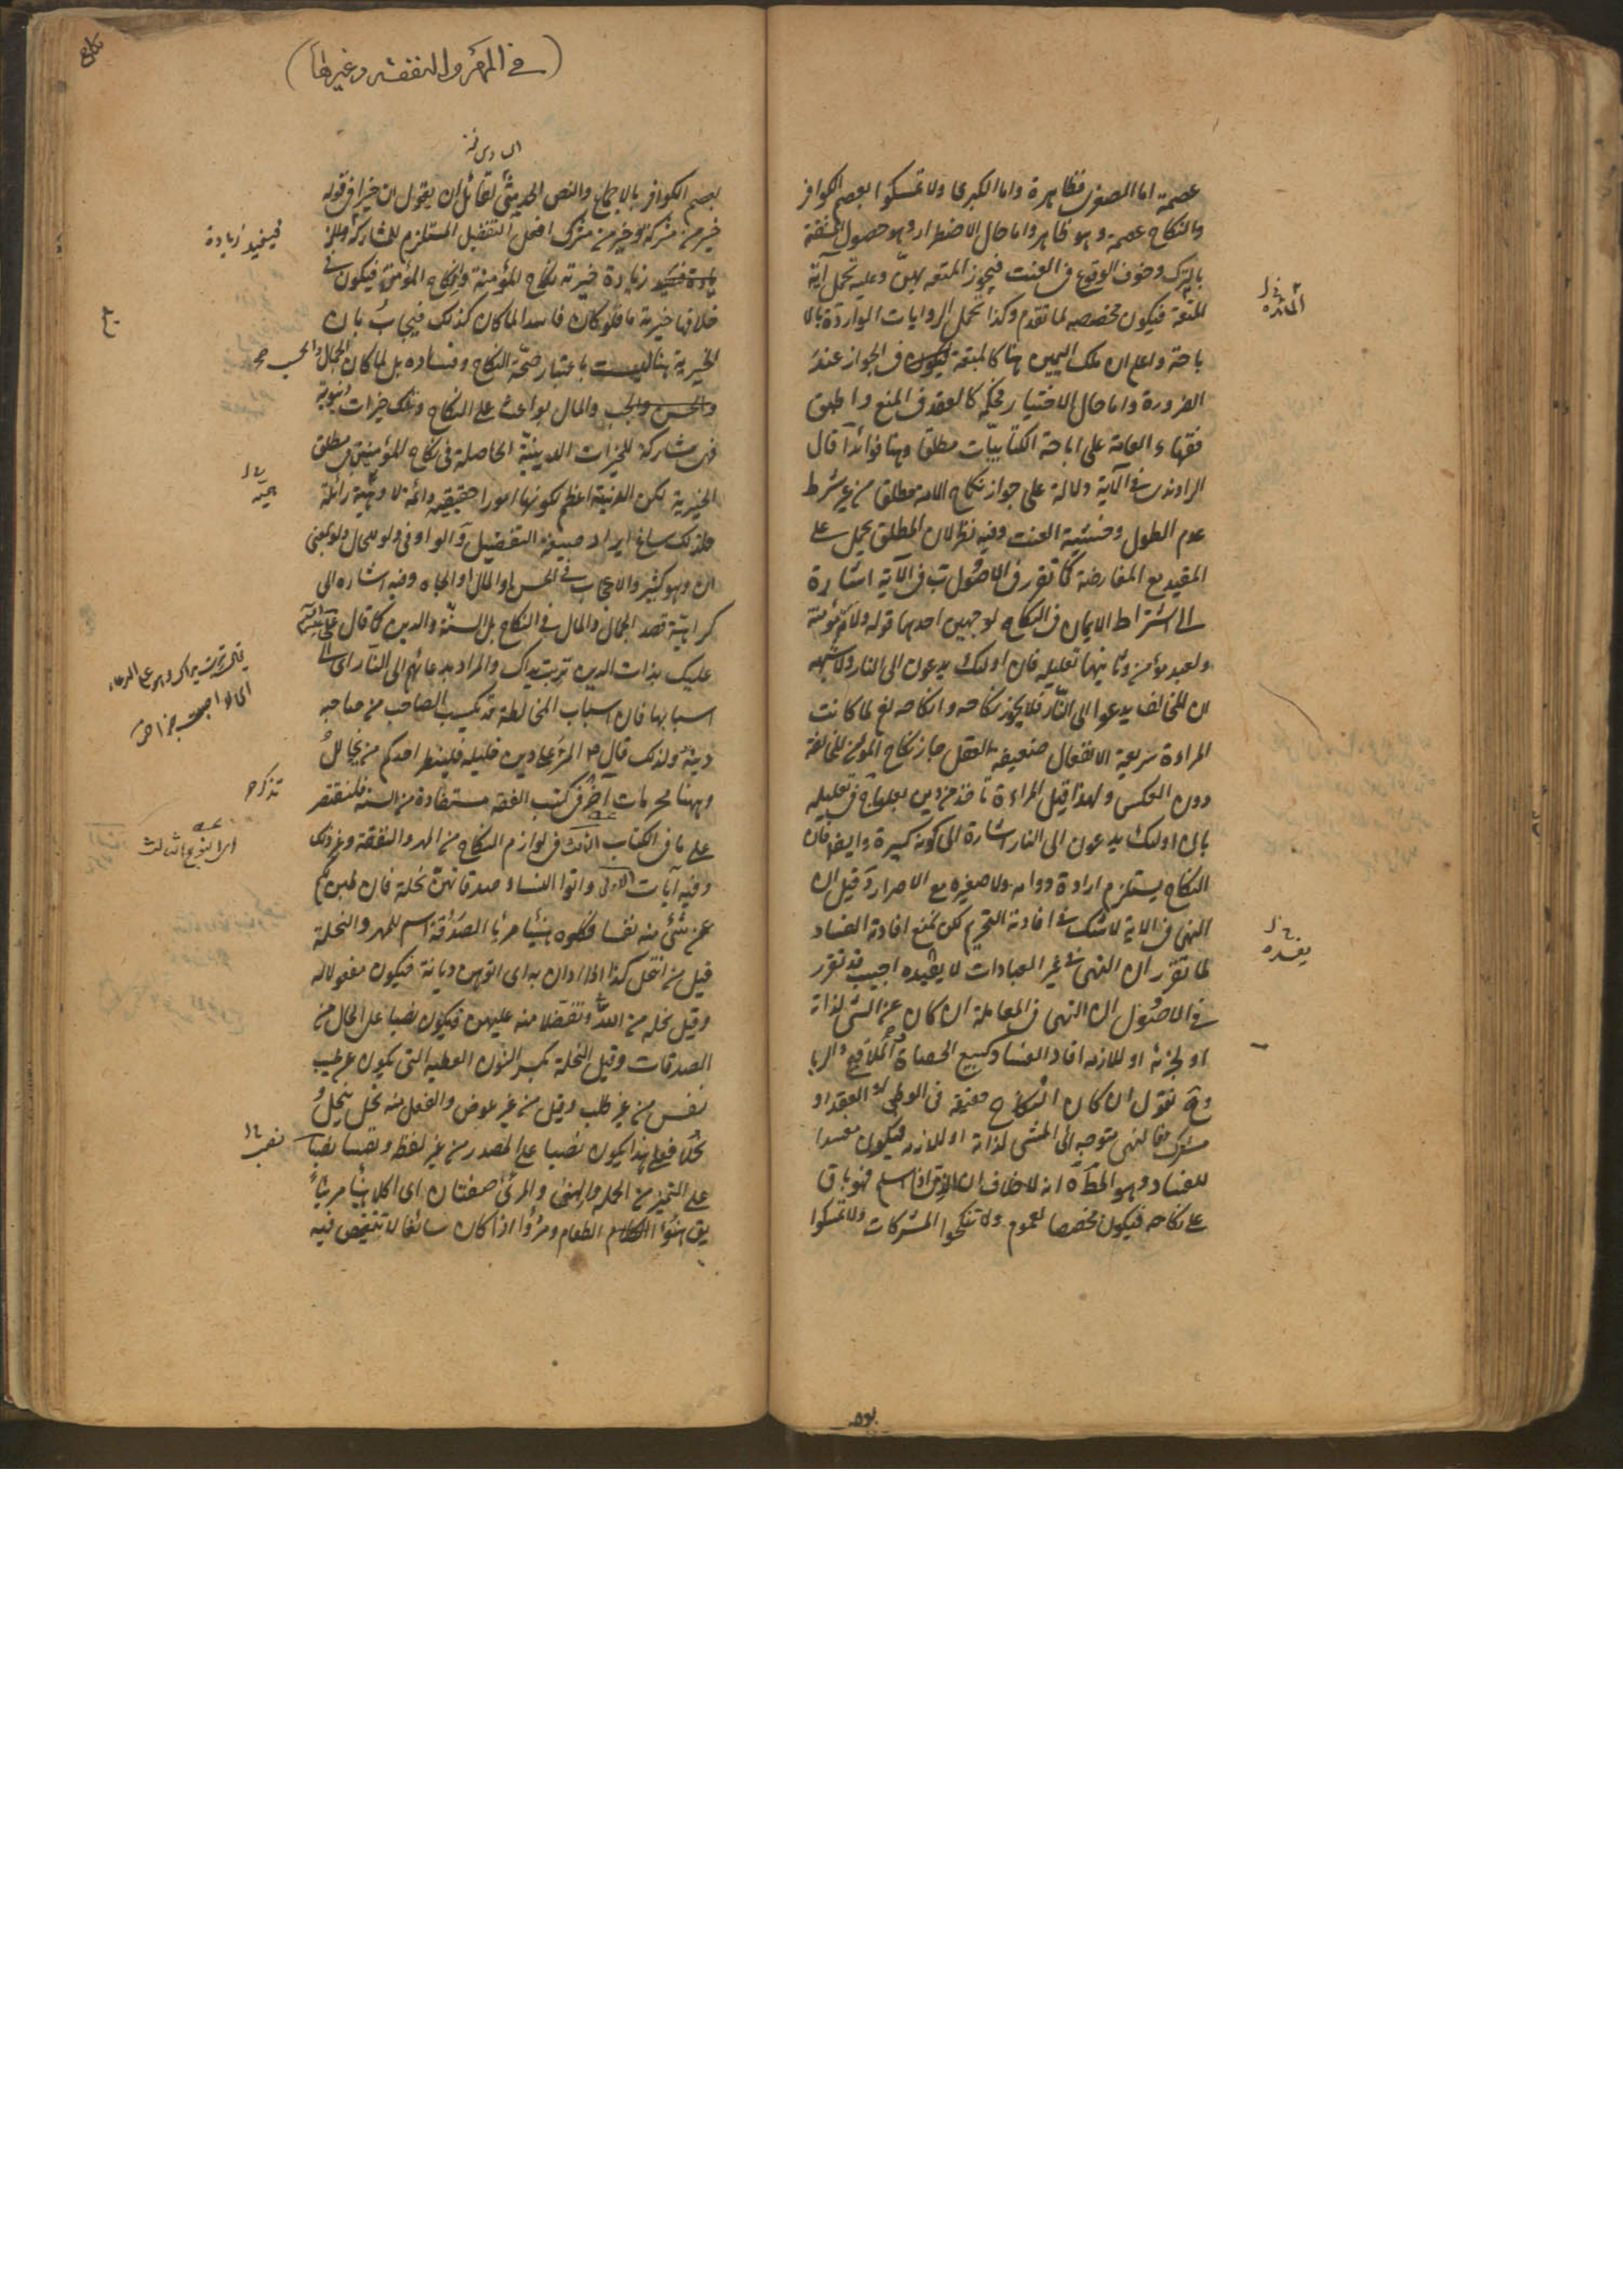 عصمة اما الصغرى فظاهرة واما الكبرى ولا تمسكوا بعصم الكوافر
والنكاح عصمة وهو ظاهر واما حال الاضطرار وهو حصول المشقة
بالترك وخوف الوقوع فى العنت فيجوز المتعة بهن وعليه تحمل آية
المتعة فيكون مخصصه لما تقدم وكذا تحمل الروايات الواردة بالا
باحة واعلم ان ملك اليمين هنا كالمتعة فى الجواز عند
الضرورة واما حال الاختيار فحكمه كالعقد فى المنع واطبق
فقهاء العامة على اباحة الكتابيات مطلقا وهنا فوائد آ قال
الراوندى فى الآية دلالة على جواز نكاح الامة مطلقا من غير شرط
عدم الطول وخشية العنت وفيه نظر لان المطلق يحمل على
المقيد مع المعارضة كما تقرر فى الاصول ب فى الآية اشارة
الى اشتراط الايمان فى النكاح لوجهين احدهما قوله ولامة مؤمنة
ولعبد مؤمن وثانيهما تعليله فان اولئك يدعون الى النار ولا شبهه
ان المخالف يدعوا الى النار فلا يجوز نكاحه وانكاحه نعم لما كانت
المراءة سريعة الانفعال ضعيفة العقل جاز نكاح المؤمن للمخالفة
دون العكس ولهذا قيل المراءة تأخذ من دين بعلها ج فى تعليله
بان اولئك يدعون الى النار اشارة الى كونه كبيرة وايضا فان
النكاح يستلزم ارادة دوامه ولا صغيره مع الاصرار د قيل ان
النهى فى الاية لا شك فى افادته التحريم لكن نمنع افادته الفساد
لما تقرر ان النهى فى غير العبادات لا يفيده اجيب قد تقرر
فى الاصول ان النهى فى المعاملة ان كان عن الشئ لذاته
او لجزئه او للازمه افاد الفساد كبيع الحصاة والملاقيح والربا
وح نقول ان كان النكاح حقيقة فى الوطى او العقد او
مشترك فالنهى متوجه الى الشئ لذاته او للازمه فيكون مفسدا
للفساد وهو المط ه انه لا خلاف ان اذا اسلم فهو باق
على نكاحه فيكون مخصصا لعموم ولا تنكحوا المشركات ولا تمسكوا
المائده
يفسده
(فى المهر والنفقه وغيرها)
نكاح
بعصم الكوافر بالاجماع والنص الحديثى لقائل ان يقول ان خيرا فى قوله
خير من مشركة وخير من مشرك افعل التفضيل المستلزم للمشاركة
زيادة خيرته نكاح المؤمنة وانكاح المؤمن فيكون فى
خلافها خيرية ما فلو كان فاسدا لما كان كذلك فيجاب بان
الخيرية هنا ليست باعتبار صحة النكاح وفساده بل لما كان الجمال والحسب
والمال بواعث على النكاح وتلك خيرات دنيوية
فهى مشاركة للخيرات الدينية الحاصلة فى نكاح المؤمنين فى مطلق
الخيرية لكن الدينية اعظم لكونها امورا حقيقية دائمة لا وهمية زائلة
فلذلك ساغ ايراد صيغة التفضيل و الواو فى ولو للحال ولو بمعنى
ان وهو كثير والاعجاب فى الحسن او المال او الجاه وفيه اشاره الى
كراهية قصد الجمال والمال فى النكاح بل السنة والدين كما قال
عليك بذات الدين تربت يداك والمراد بدعائهم الى النار اى الى
اسبابها فان اسباب المخالطة قد تكسب الصاحب من صاحبه
دينه ولذلك قال ص المرء على دين خليله فلينظر احدكم من يخالل
وههنا محرمات آخر فى كتب الفقه مستفادة من السنة فلنقتصر
على ما فى الكتاب الثالث فى لوازم النكاح من المهر والنفقة وغير ذلك
وفيه آيات الاولى واتوا النساء صدقاتهن نحلة فان طبن لكم
عن شئ منه نفسا فكلوه هنيئا مريئا الصدقة اسم للمهر والنحلة
قيل من انتحل كذا اذا دان به اى اتوهن ديانة فيكون مفعولا له
وقيل نحلة من الله وتفضلا منه عليهن فيكون نصبا على الحال من
الصدقات وقيل النحلة بكسر النون العطيه التى يكون عن طيب
نفس من غير طلب وقيل من غير عوض والفعل منه نحل ينحل و
نحلا فعلى هذا يكون نصبا على المصدر من غير لفظه ونفسا نصبا
على التميز من الجملة والهنئ والمرئ صفتان اى اكلا هنيئا مريئا
يق هنؤ الطعام ومرؤ اذا كان سائغا لا تنغيص فيه
فيفيد زيادة
يقال تربت يداك وهو على الدعاء
تذكره
اى النوع الثالث